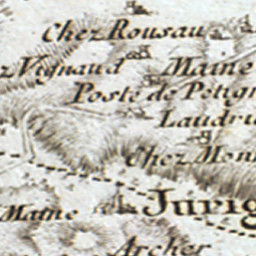 Chez Rousau
Vignaud
Maine
Poste de Petign
Laudri
Chez Mon
Maine
Jurig
Archer